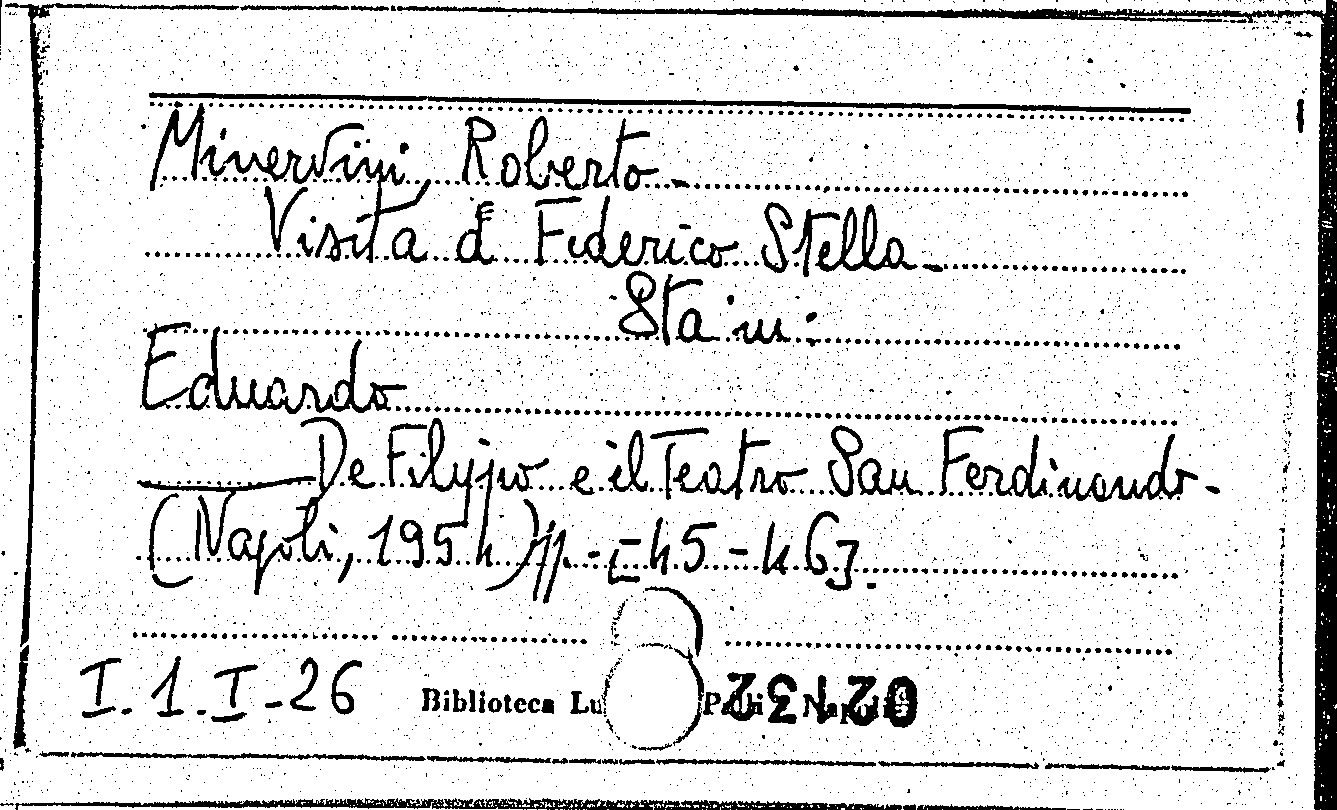 Minervini, Roberto.
Visita di Federico Stella.
Sta in:
Eduardo
De Filippo e il Teatro San Ferdinando.
(Napoli, 1954) pp. [45-46].
I. 1. I-26
Biblioteca Lu